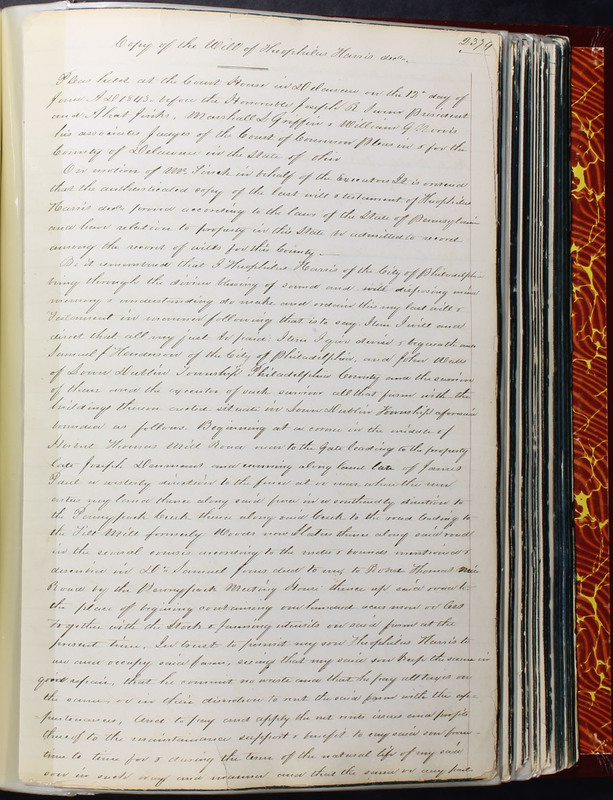 2374
Copy of the Will of Theophilus Harris decd.
Pleas held at the Court House in Delaware on the 12th day of
June AD 1843. before the Honorable Joseph R Swan President
and Ahab Jinks, Marshall L Griffin & William G Norris
his associates Judges of the Court of Common Pleas in & for the
County of Delaware in the State of Ohio
On motion of Mr Finch in behalf of the Executors It is ordered
that the authenticated copy of the last will & testament of Theophilus
Harris decd proved according to the laws of the State of Pennsylvania
and have relation to property in this State be admitted to record
among the record of wills for this County.
Be it remembered that I Theophilus Harris of the City of Philadelphia
being through the divine blessing of sound and well disposing mind
memory & understanding do make and ordain this my last will &
Testament in manner following that is to say. Item I will and
direct that all my just be paid. Item I give devise & bequeath unto
Samuel J Henderson of the City of Philadelphia, and John Walls
of Lower Dublin Township Philadelphia County and the survivor
of them and the executor of such survivor all that farm with the
buildings thereon erected situate in Lower Dublin Township aforesaid
bounded as follows. Beginning at a corner in the middle of
Robert Thomas Mill Road near to the Gate leading to the property
late Joseph Denmans and running along land late of James
Paul a westerly direction to the fence at or near where the run
enters my land thence along said fence in a continually direction to
the Pennypack Creek thence along said Creek to the road leading to
the Mill formerly Woods now Slaters thence along said road
in the several courses according to the metes & bounds mentioned &
described in Dr Samuel Jones deed to me to Robert Thomas Mill
Road by the Pennypack Meeting House thence up said road to
the place of begining containing one hundred acres more or less
Together with the Stock & farming utensils on said farm at the
present time, In trust to permit my son Theophilus Harris to
use and occupy said Farm, seeing that my said son keep the same in
good repair, that he commit no waste and that he pay all taxes on
the same, or in their discretion to rent the said farm with the ap-
purtenances, And to pay and apply the net rents issues and profits
thereof to the maintainance support & benefit to my said son from
time to time for & during the term of the natural life of my said
son in such way and manner and that the same or any part